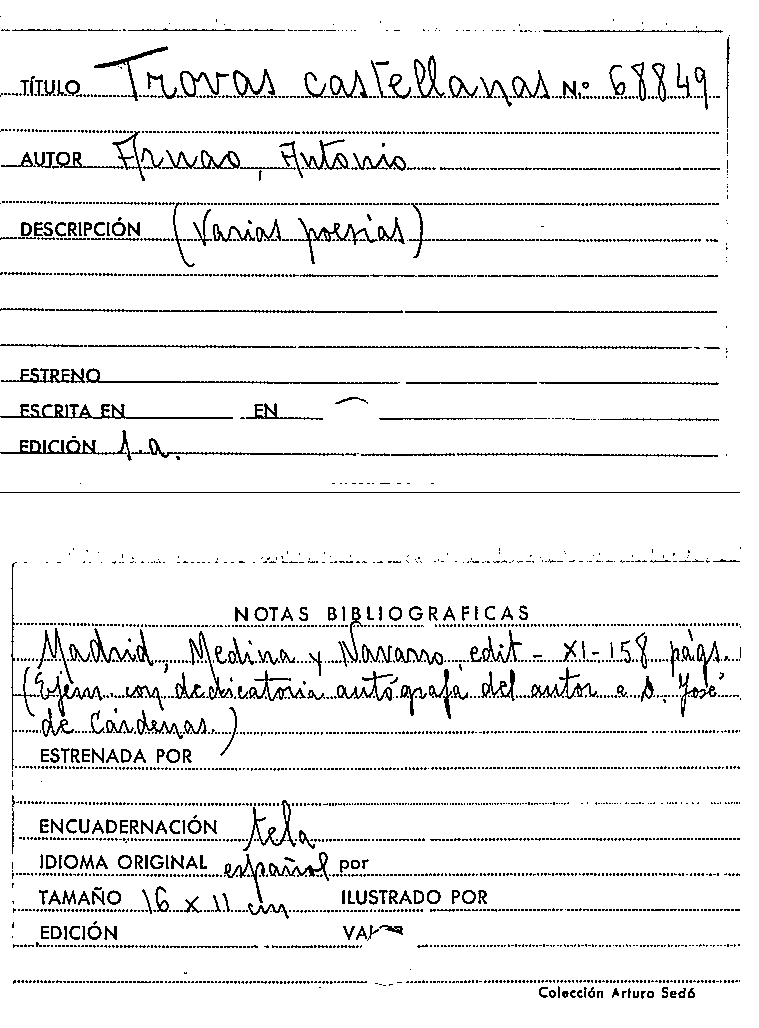 TÍTULO Trovas castellanas N.º 68849
AUTOR Arnao, Antonio
DESCRIPCIÓN (Varias poesías)
ESTRENO
ESCRITA EN EN
EDICIÓN 1.a.
NOTAS BIBLIOGRAFICAS
Madrid, Medina y Navarro, edit - XI-158 págs.
(Ejem con dedicatoria autógrafa del autor a D. José
de Cárdenas.)
ESTRENADA POR
ENCUADERNACIÓN tela
IDIOMA ORIGINAL español por
TAMAÑO 16 x 11 cm ILUSTRADO POR
EDICIÓN
Colección Arturo Sedó